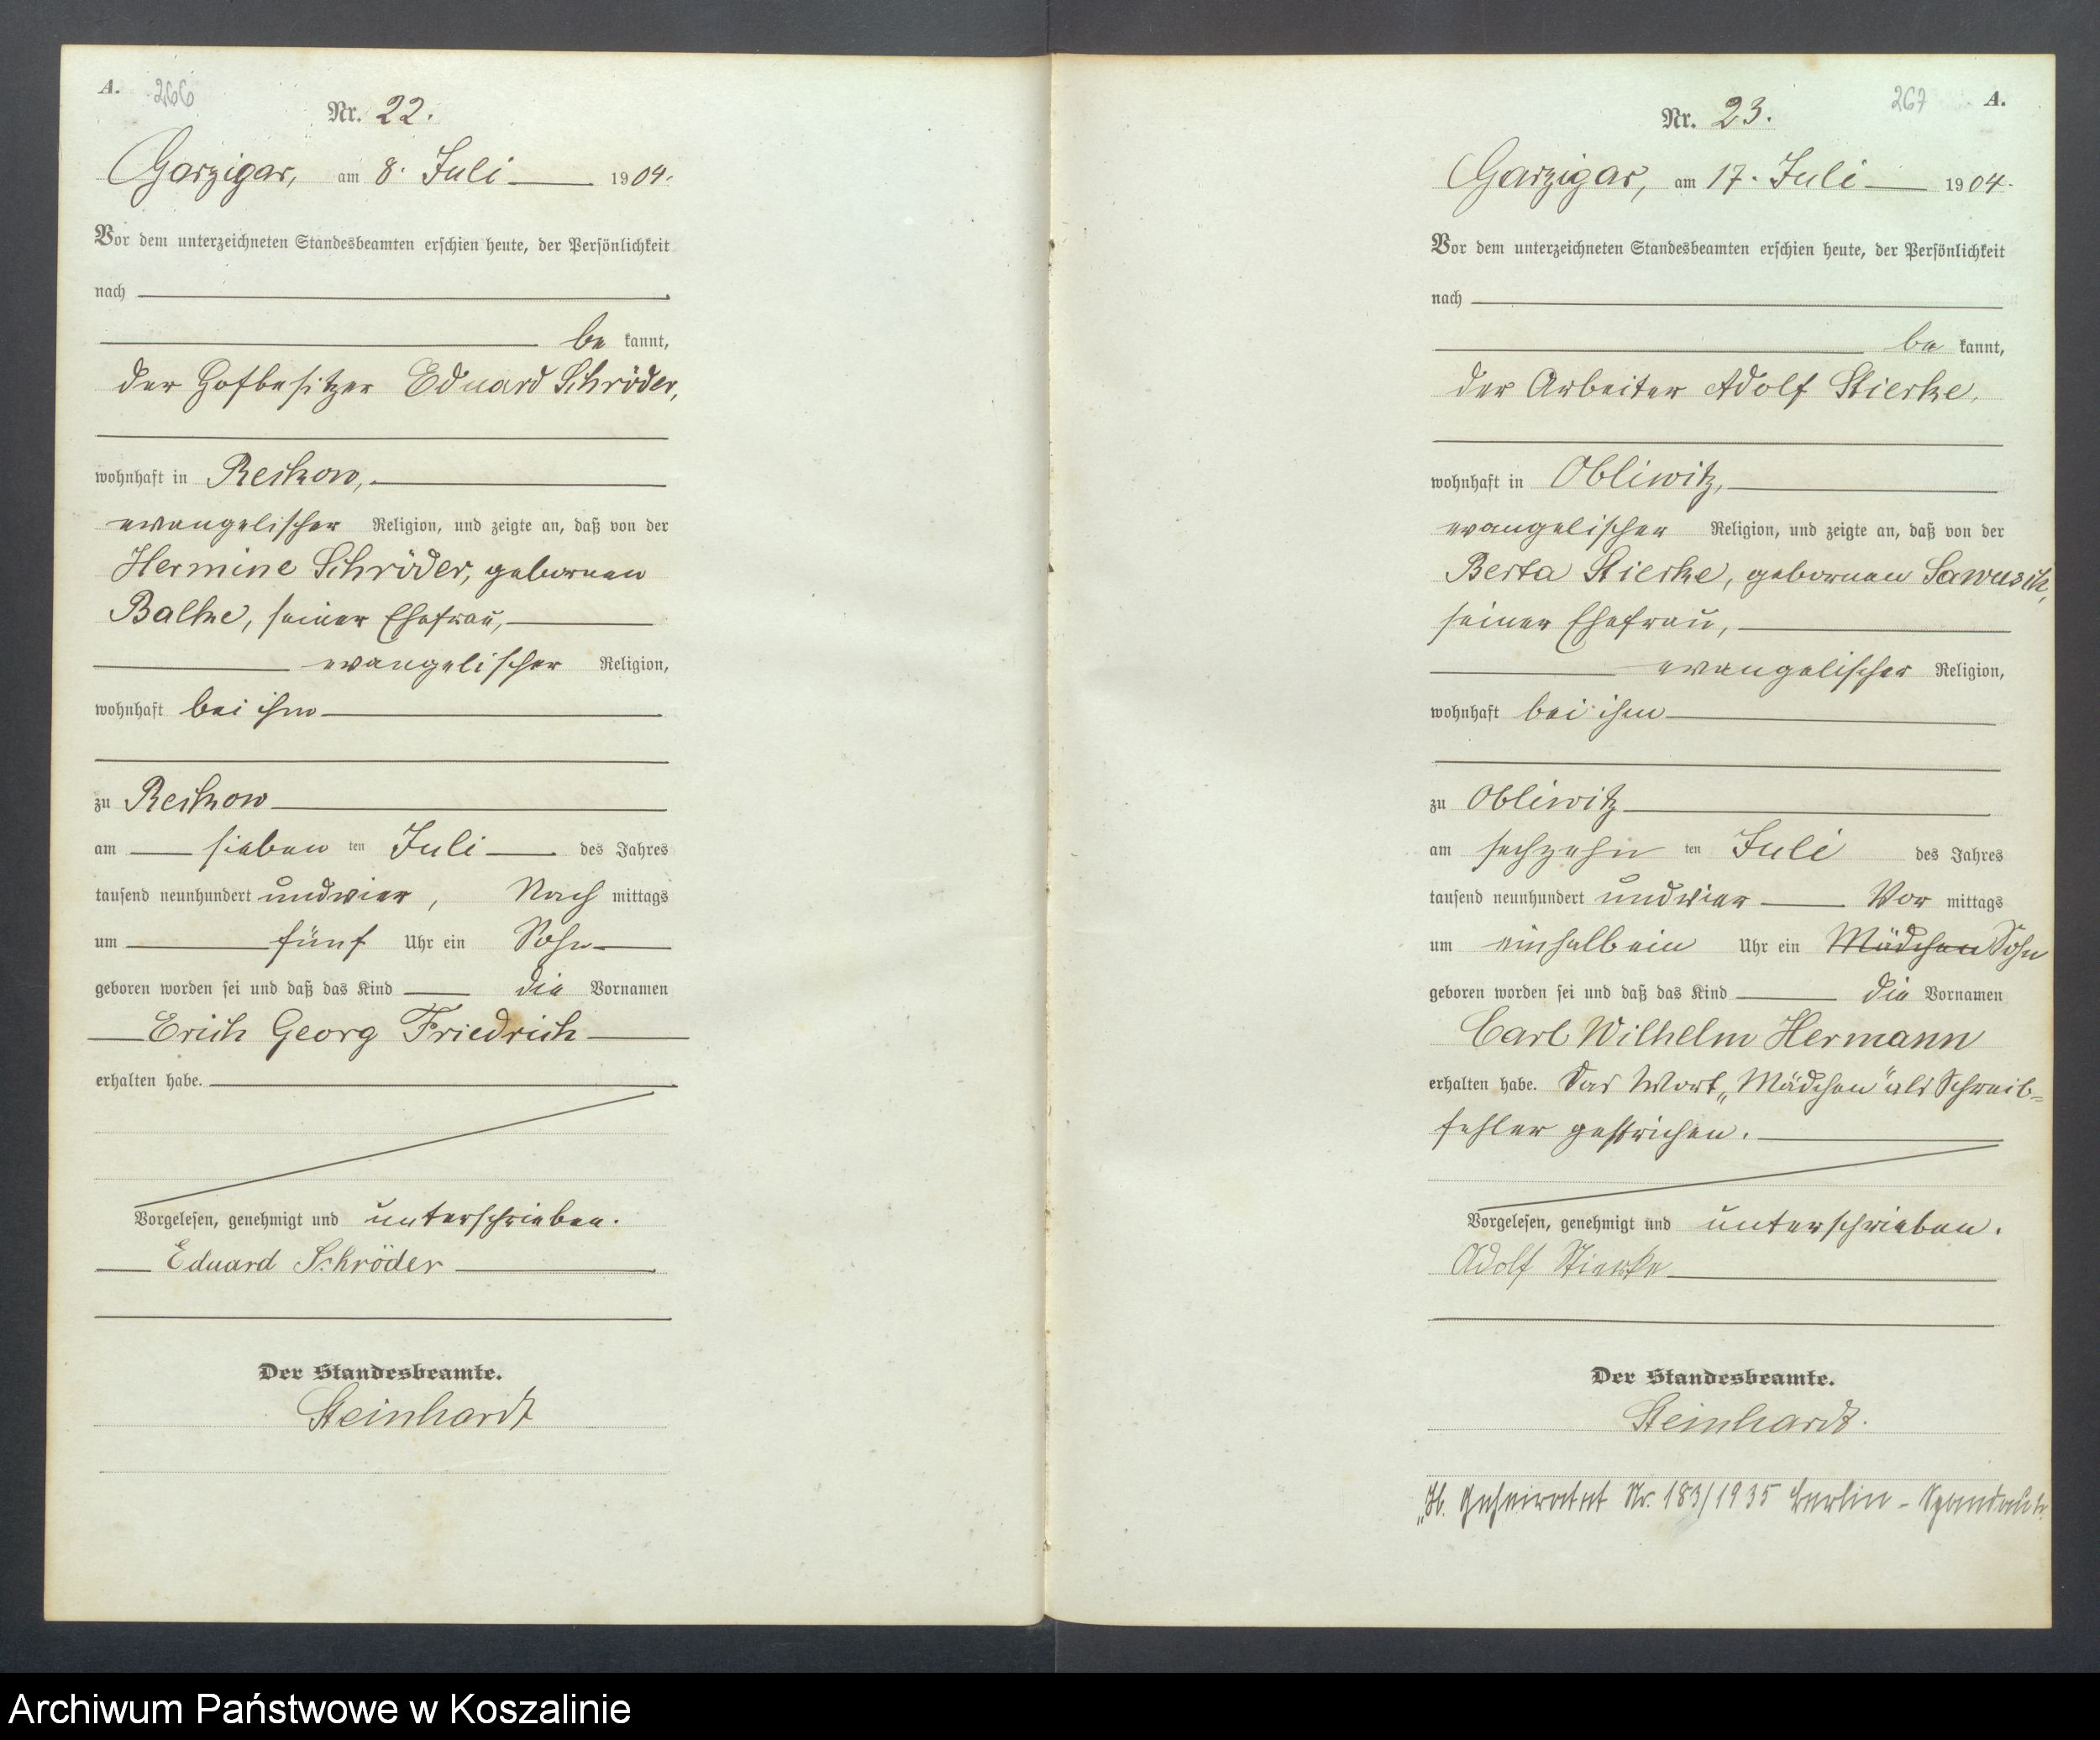 A. 266
Nr. 22.
Garzigar, am 8. Juli 1904.
Vor dem unterzeichneten Standesbeamten erschien heute, der Persönlichkeit
nach
be kannt,
der Hofbesitzer Eduard Schröder,
wohnhaft in Reckow,
evangelischer Religion, und zeigte an, daß von der
Hermine Schröder, gebornen
Balke, seiner Ehefrau,
evangelischer Religion,
wohnhaft bei ihm
zu Reckow
am sieben ten Juli des Jahres
tausend neunhundert undvier, Nach mittags
um fünf Uhr ein Sohn
geboren worden sei und daß das Kind die Vornamen
Erich Georg Friedrich
erhalten habe.
Vorgelesen, genehmigt und unterschrieben.
Eduard Schröder
Der Standesbeamte.
Steinhardt
267 A.
Nr. 23.
Garzigar, am 17. Juli 1904.
Vor dem unterzeichneten Standesbeamten erschien heute, der Persönlichkeit
nach
be kannt,
der Arbeiter Adolf Stierke,
wohnhaft in Obliwitz,
evangelischer Religion, und zeigte an, daß von der
Berta Stierke, gebornen
seiner Ehefrau,
evangelischer Religion,
wohnhaft bei ihm
zu Obliwitz
am sechzehn ten Juli des Jahres
tausend neunhundert undvier Vor mittags
um einhalb ein Uhr ein Mädchen Sohn
geboren worden sei und daß das Kind die Vornamen
Carl Wilhelm Hermann
erhalten habe. Das Wort „Mädchen" als Schreib=
fehler gestrichen.
Vorgelesen, genehmigt und unterschrieben.
Adolf Stierke
Der Standesbeamte.
Steinhardt.
Geheiratet Nr. 183/1935 Berlin - Spandau
Archiwum Państwowe w Koszalinie